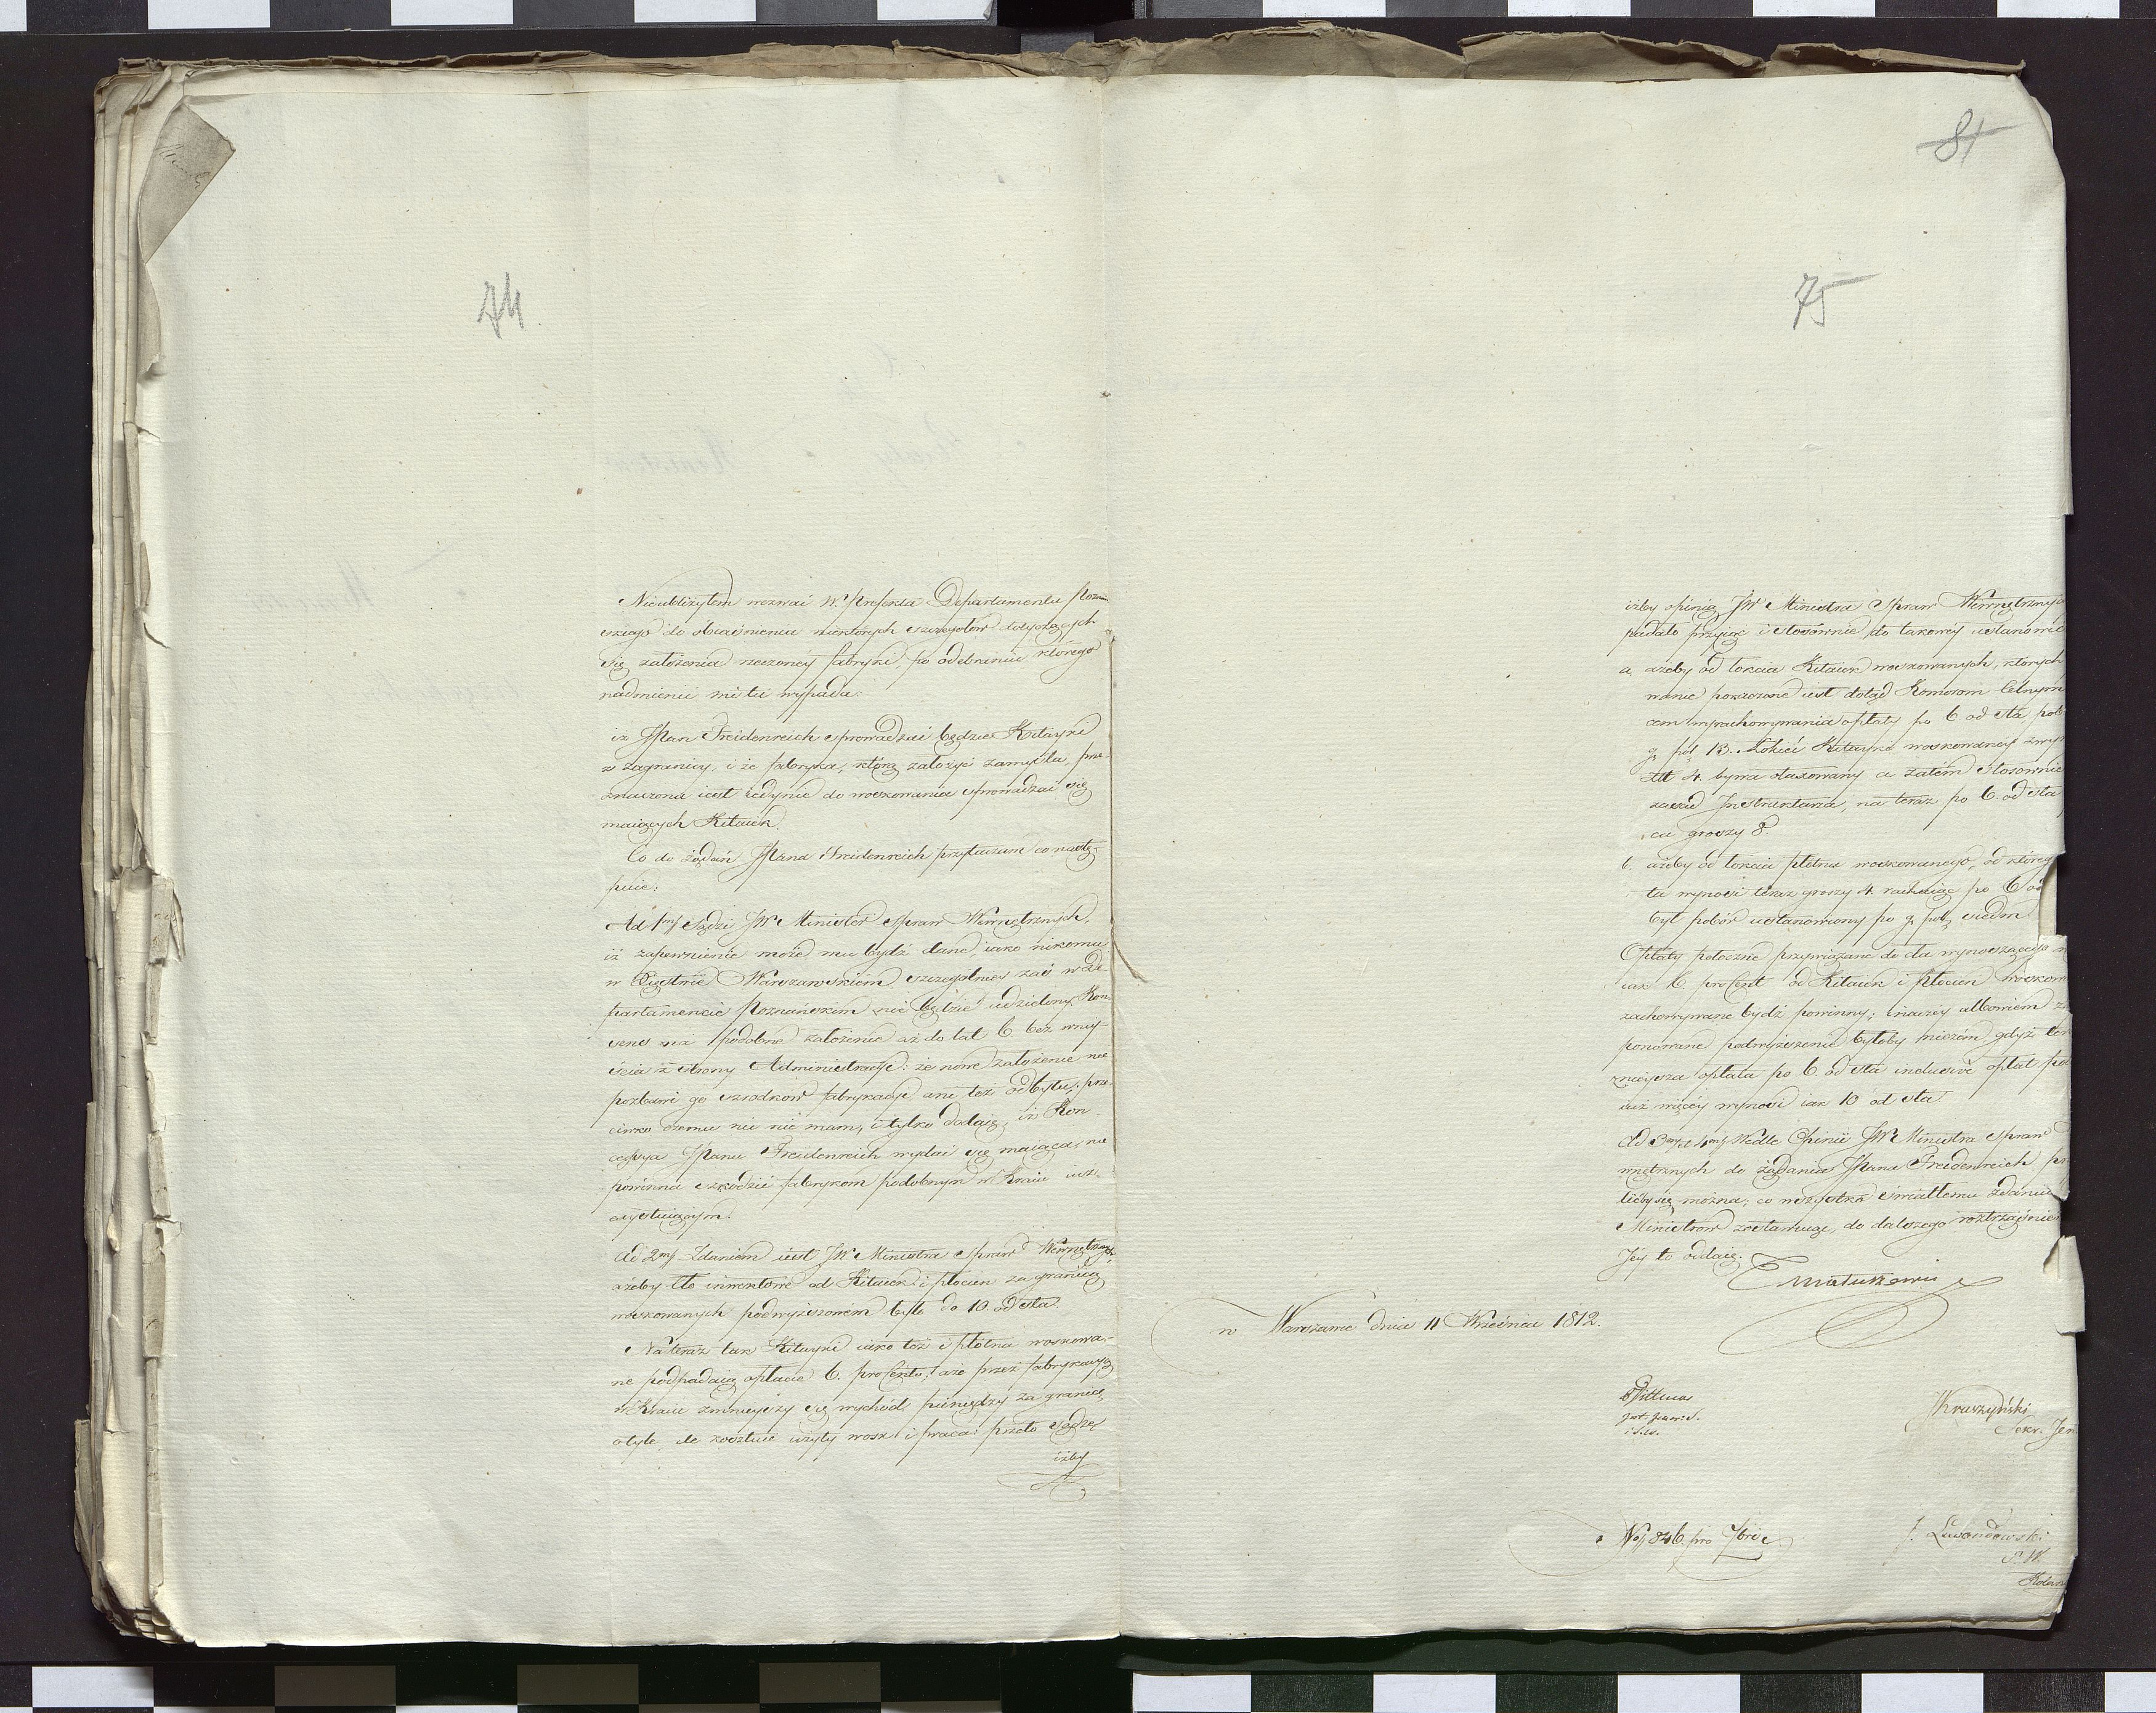 74
Nieubliżyłem wezwać W. Prefekta Departamentu Poznań
skiego do obiaśnienia niektórych szczegułów dotyczących
się założenia rzeczonéy fabryki, po odebraniu którego
nadmienić mi tu wypada:
iż JPan Freidenreich sprowadzać będzie Kitayki
z zagranicy, i że fabryka, którą założyć zamyśla, prze-
znaczona iest iedynie do woskowania sprowadzać się
maiących Kitaiek.
Co do żądań JPana Freidenreich przytaczam co nastę-
puie:
Ad 1mj. Sądzi JW. Minister Spraw Wewnętrznych,
iż zapewnienie może mu bydź dane, iako nikomu
w Xięstwie Warszawskiém szczególniéy zaś w De
partamencie Poznańskim nie będzie udzielony Kon-
sens na podobne założenie aż do lat 6. bez wniy-
ścia z strony Administracyi: że nowe założenie nie
pozbawi go szrodków fabrykacyi ani też odbytu; prze-
ciwko czemu nic nié mam, i tylko dodaię, iż Kon-
cessya JPanu Freidenreich wydać się maiąca, nie
powinna szkodzić fabrykom podobnym w Kraiu iuż
exystuiącym.
Ad 2mj. Zdaniem iest JW. Ministra Spraw Wewnętrznych,
ażeby cło inwentowe od Kitaiek i płocien zagranicą
woskowanych podwyższonem było do 10. od sta.
Na teraz tak Kitayki iako też i płótna woskowa-
ne podpadaią opłacie 6. proCentu; aże przez fabrykacyą
w Kraiu zmnieyszy się wychód pieniędzy za granicę,
otyle, ile kosztuie użyty wosk i praca: przeto sądzę
iżby
81
75
iżby opinią JW. Ministra Spraw Wewnętrznych
padało przyiąć i stosównie do takowéy ustanowić
a, ażeby od łokcia Kitaiek woskowanych, których
wanie poruczone iest dotąd Komorom Celnym
zon wyrachowywania opłaty po 6 od sta pob
gr. pol. 13. Łokieć Kitayki woskowanéy zwy
Zł. 4. bywa otaxowany a zatém stosownie
zasad Instruktarza, na teraz po 6. od sta
ca groszy 8.
b. ażeby od łokcia płótna woskowanego, od któreg
ta wynosi teraz groszy 4 rachuiąc po 6 od
był pobór ustanowiony po gr. pol. siedm
Opłaty poboczne przywiązane do cła wynoszącego
iak 6. proCent od Kitaiek i Płocien woskow
zachowywane bydź powinny; inaczéy albowiem
ponowane podwyższenie byłoby niczém gdyż
znieysza opłata po 6. od sta inclusive opłat po
iuż więcéy wynosi iak 10 od sta.
Ad 3mj et 4mj Wedle Opinii JW. Ministra Spraw
wnętrznych do żądania JPana Freidenreich
lićby się można, co wszystko światłemu zdaniu
Ministrów zostawuię, do dalszego roztrząśnie
Jéy to oddaię.
T Matuszewic
w Warszawie dnia 11 Września 1812.
Kruszyński
Sekr. Jen.
No. 846. pro 7bri
J. Lewandowski